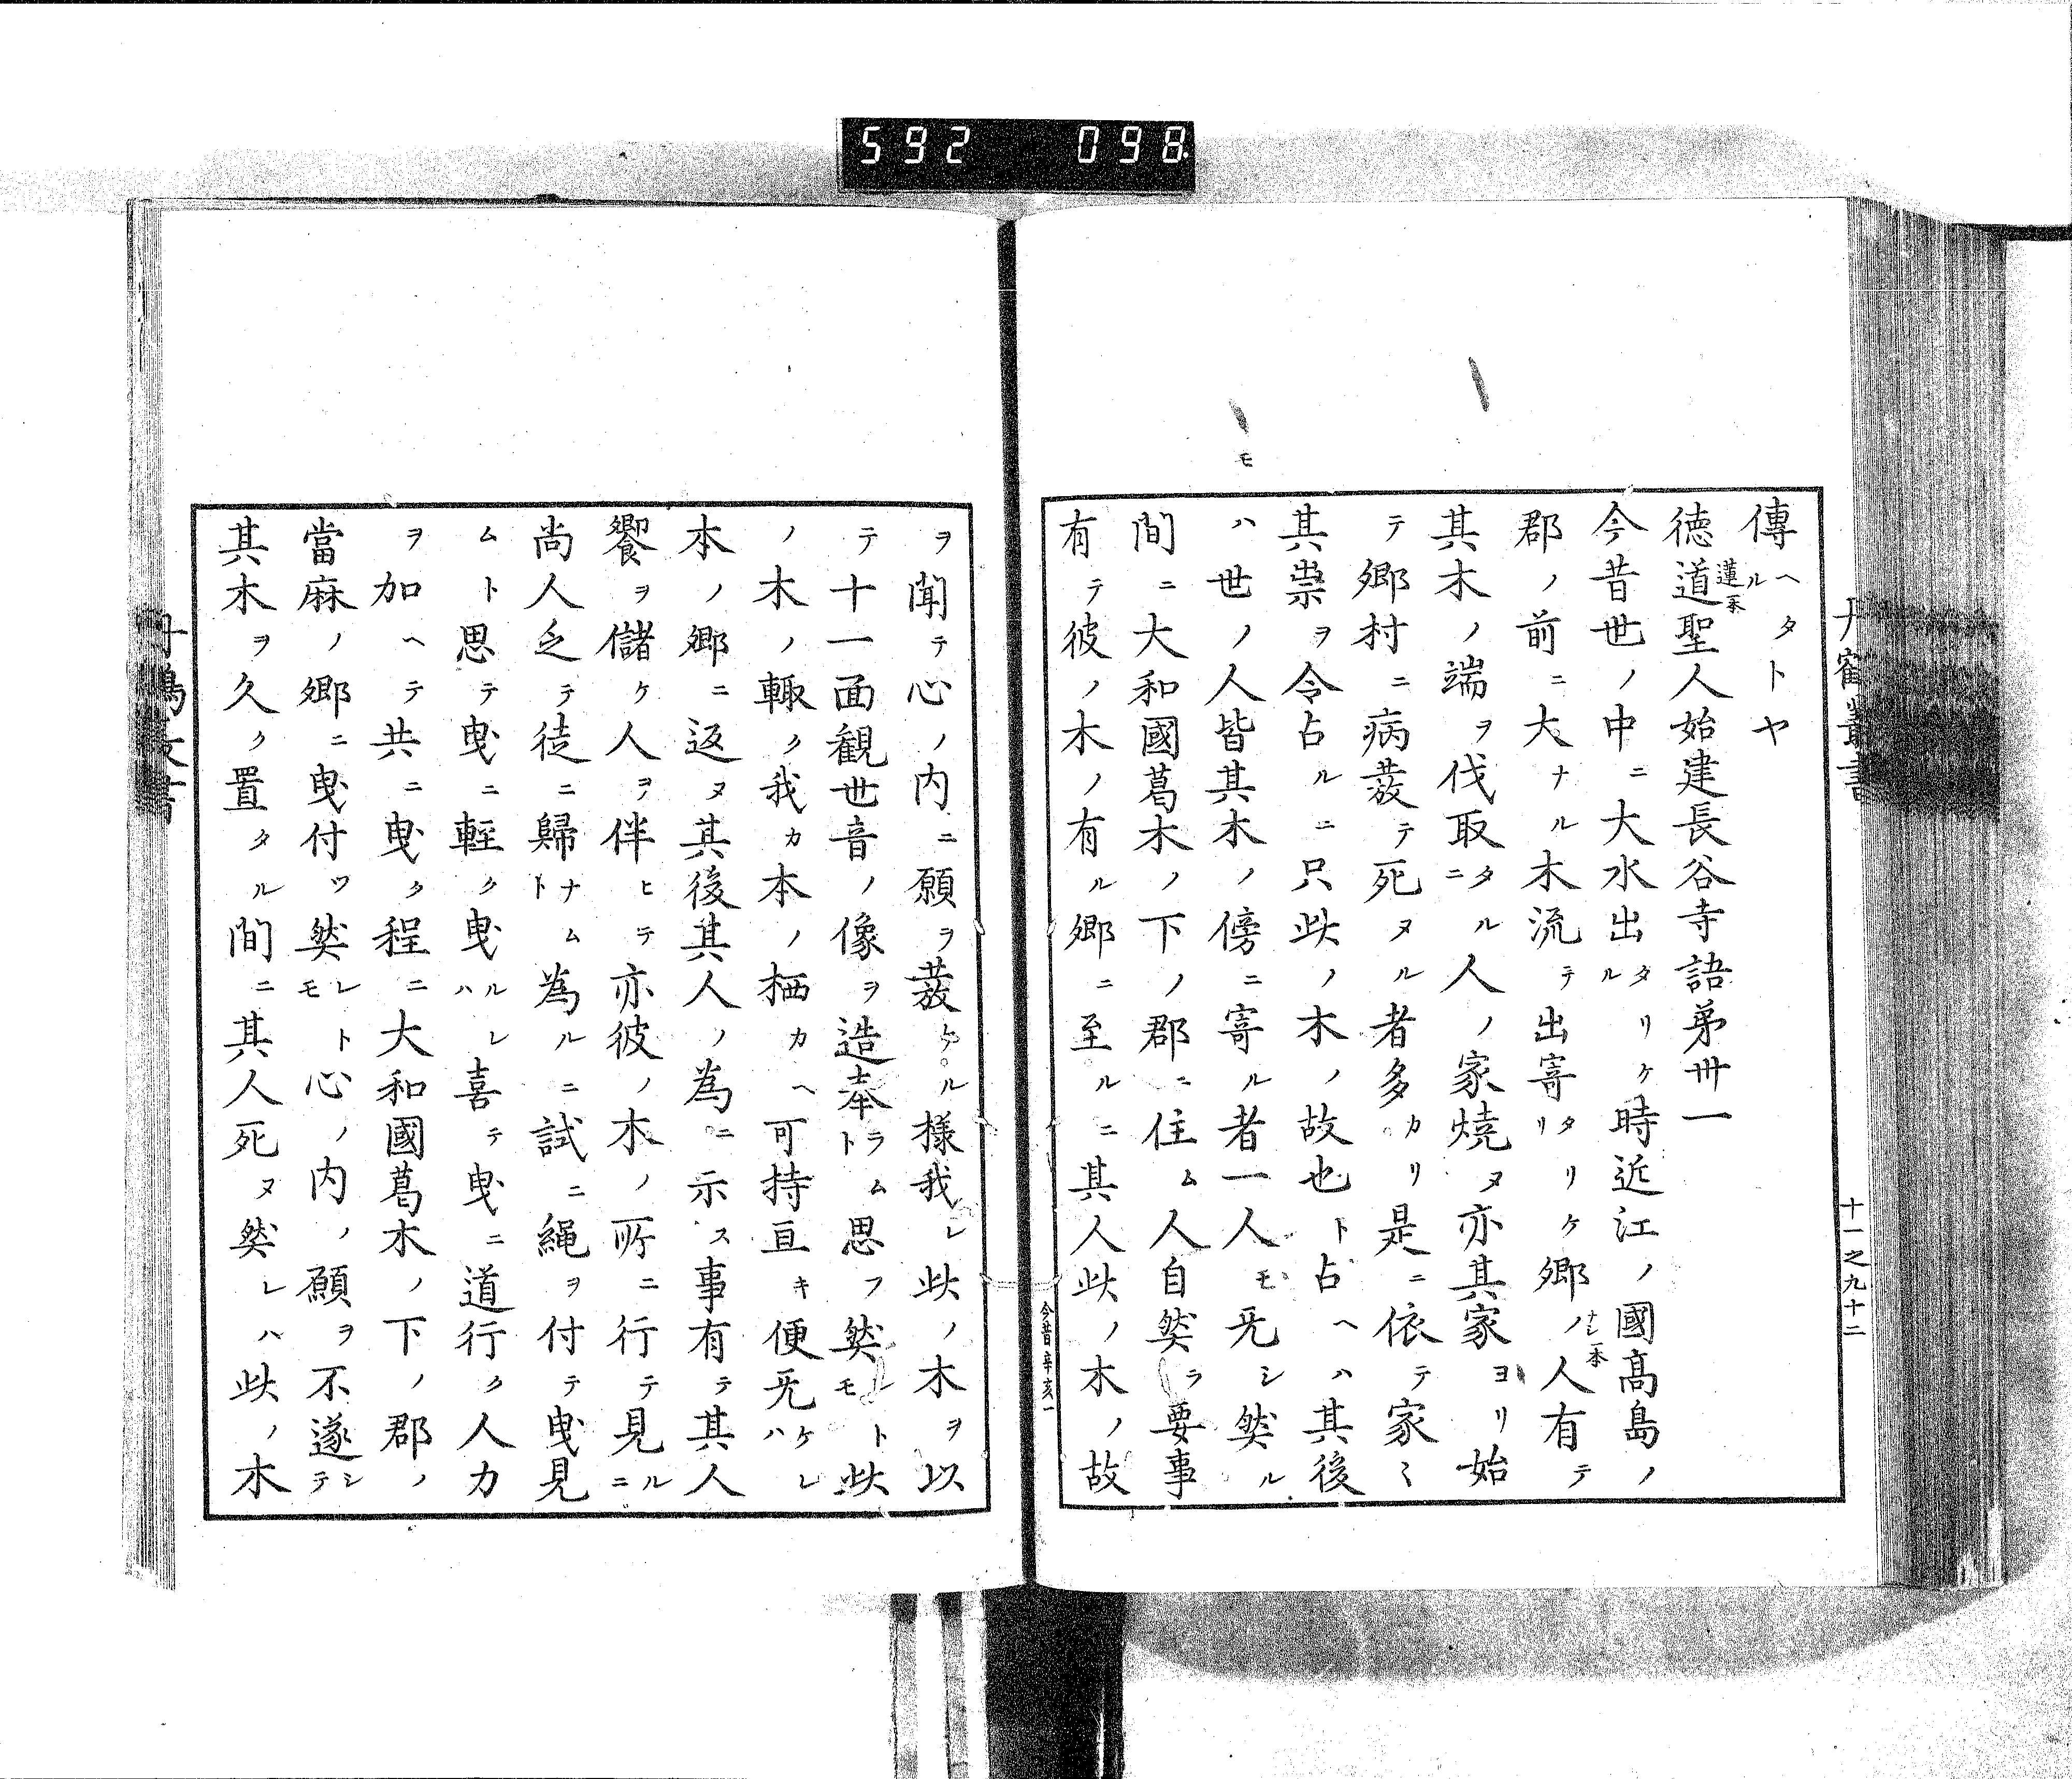 592 098
傳ヘルタトヤ
徳道聖人始建長谷寺語第卅一
蓮一本
今昔世ノ中ニ大水出タリケル時近江ノ國髙島ノ
郡ノ前ニ大ナル木流テ出寄タリケリ郷ノ人有テ
ナシ一本
其木ノ端ヲ伐取タルニ人ノ家燒ヌ亦其家ヨリ始
テ郷村ニ病發テ死ヌル者多カリ是ニ依テ家〻
其祟ヲ令占ルニ只此ノ木ノ故也ト占ヘハ其後
モ
ハ世ノ人皆其木ノ傍ニ寄ル者一人モ无シ然ル
間ニ大和國葛木ノ下ノ郡ニ住ム人自然ラ要事
有テ彼ノ木ノ有ル郷ニ至ルニ其人此ノ木ノ故
丹鶴叢書
十一之九十二
今昔 辛亥一
ヲ聞テ心ノ内ニ願ヲ發ケル様我レ此ノ木ヲ以
テ十一面観世音ノ像ヲ造奉ラムト思フ然レトモ此
ノ木ノ輙ク我カ本ノ栖カヘ可持亘キ便无ケレハ
本ノ郷ニ返ヌ其後其人ノ為ニ示ス事有テ其人
饗ヲ儲ケ人ヲ伴ヒテ亦彼ノ木ノ所ニ行テ見ルニ
尚人乏テ徒ニ歸ナムト為ルニ試ニ縄ヲ付テ曳見
ムト思テ曳ニ輕ク曳ルレハ喜テ曳ニ道行ク人力
ヲ加ヘテ共ニ曳ク程ニ大和國葛木ノ下ノ郡ノ
當麻ノ郷ニ曳付ツ然レトモ心ノ内ノ願ヲ不遂シテ
其木ヲ久ク置タル間ニ其人死ヌ然レハ此ノ木